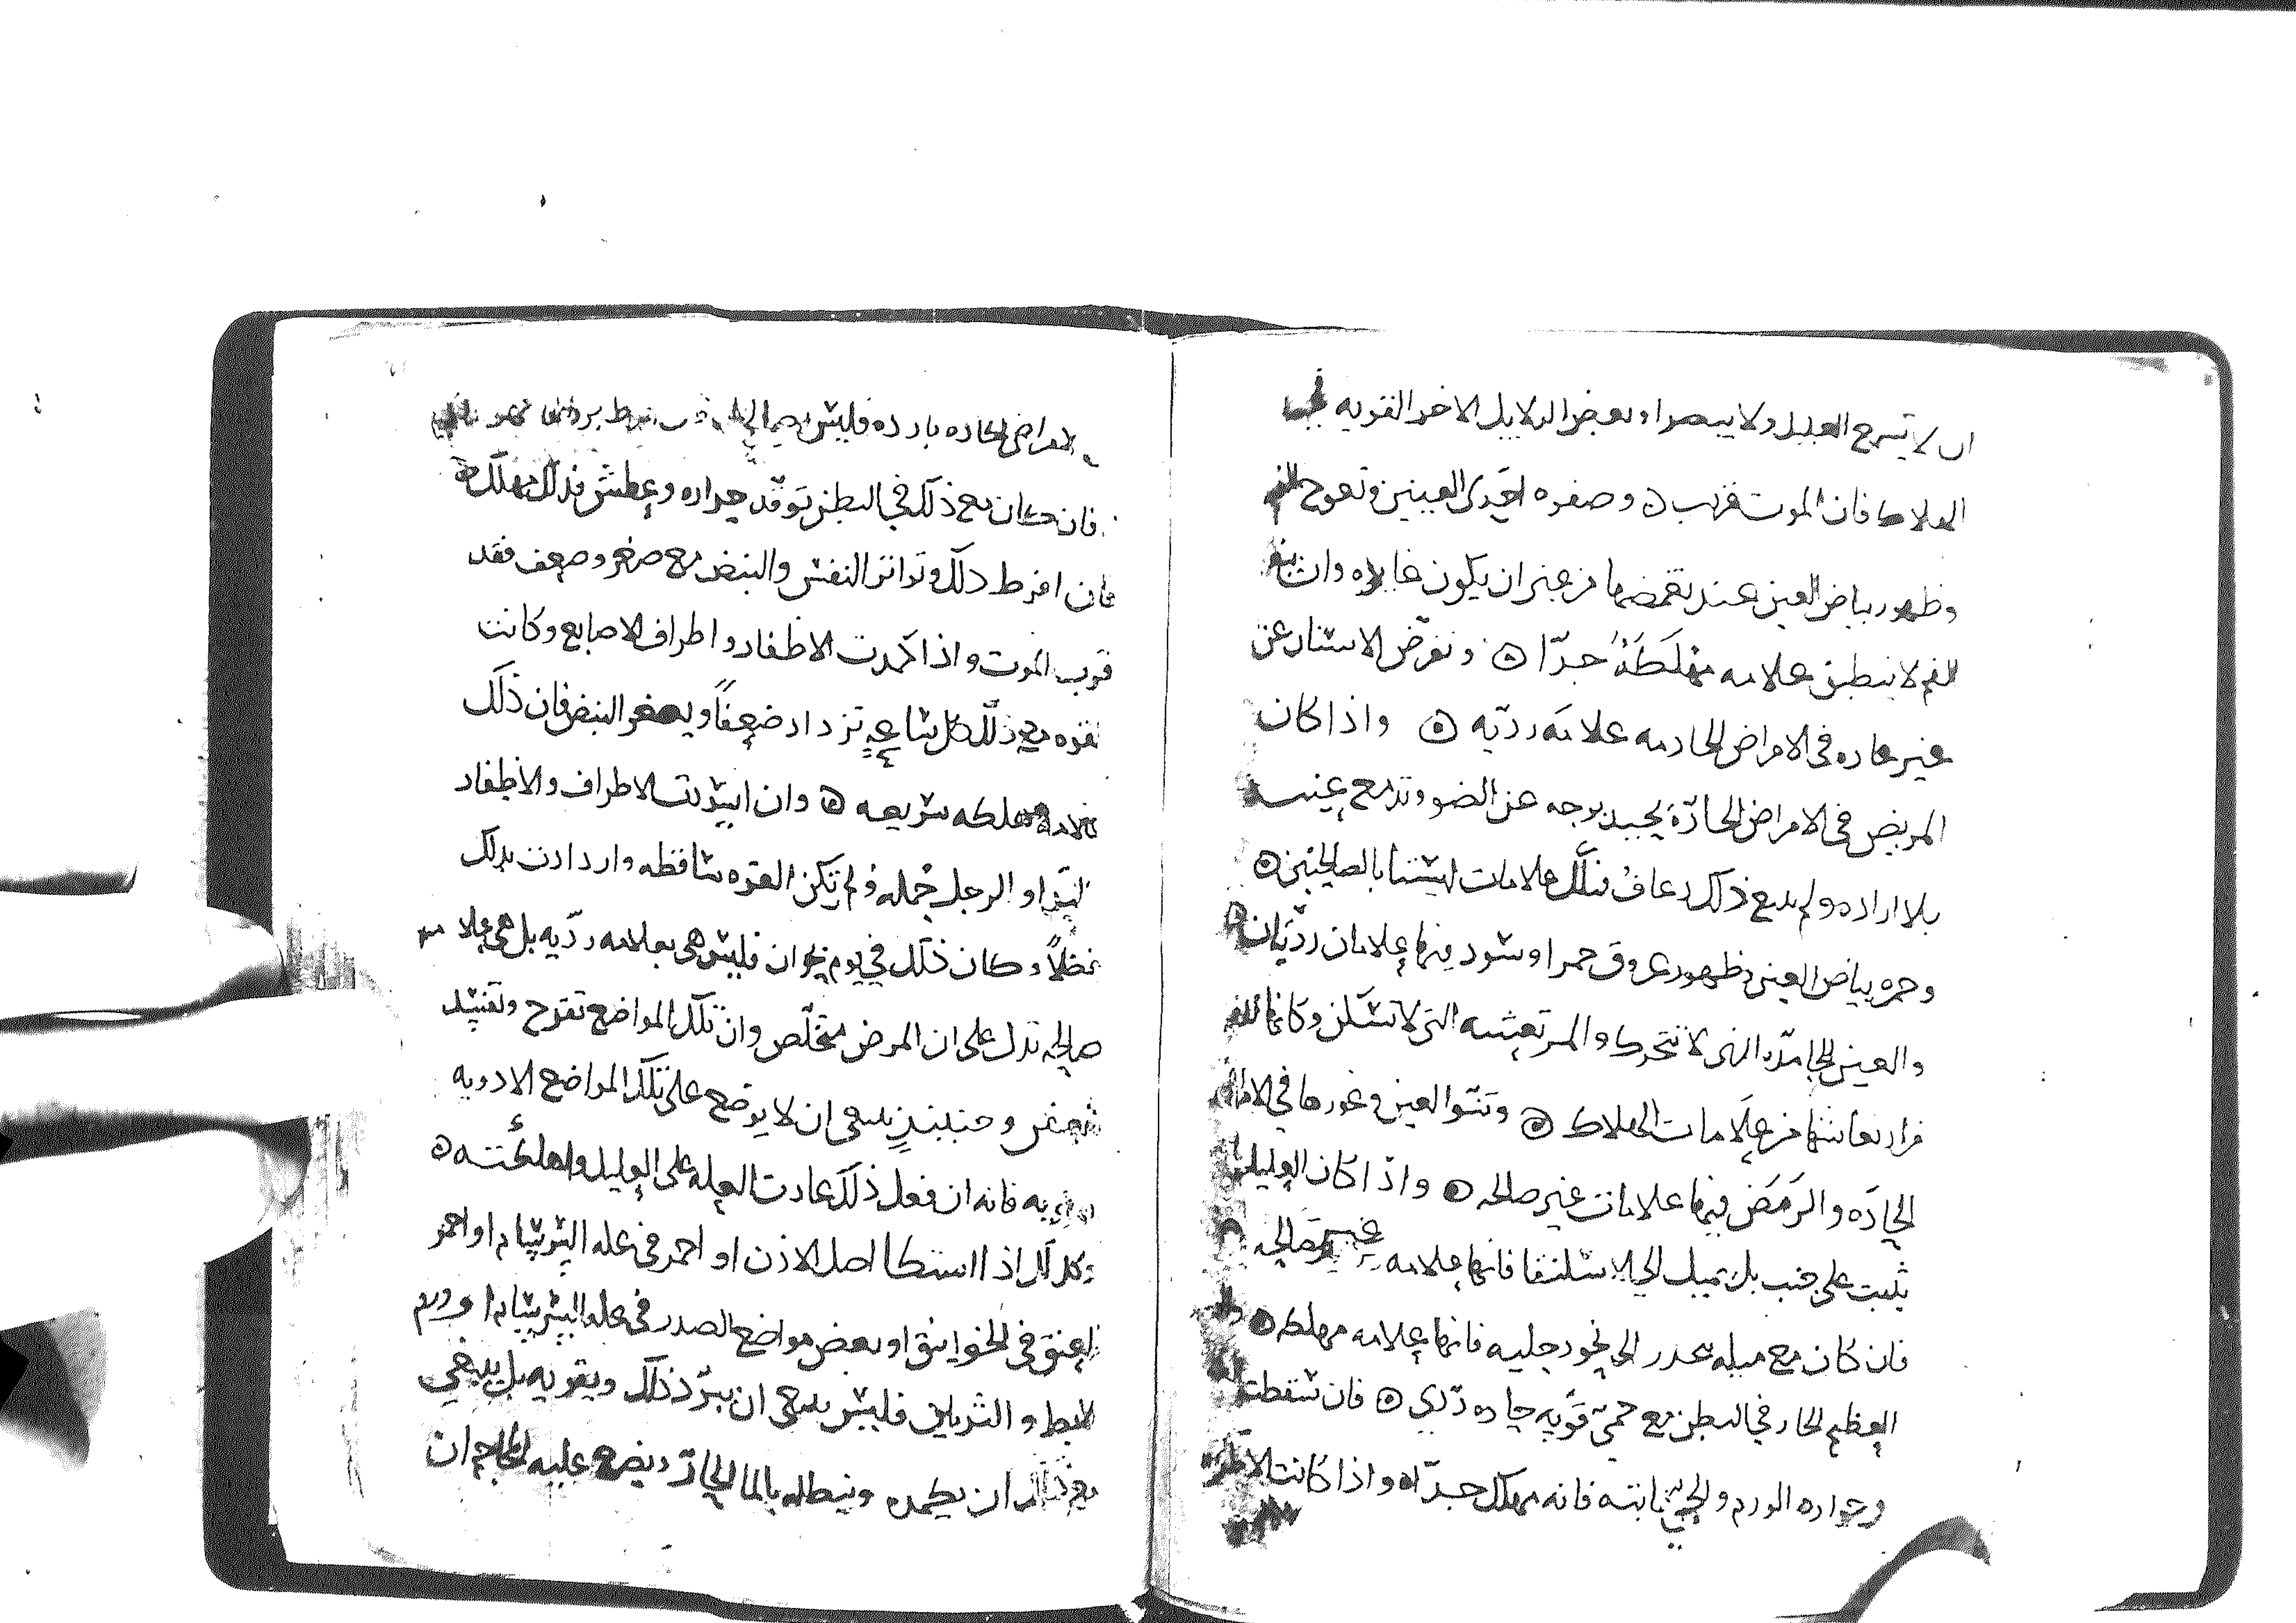 ان لا يسمع العليل ولا يبصر او بعض الدلايل الاخر القويه
الهلاك فان الموت قريب ه وصغره احدى العينين وتعوج
وظهور بياض العين عند تغمضها من غير ان يكون عاده وان
الفم لا ينطبق علامه مهلكة جدّا ه وتفرض الاسنان عن
غير عاده في الامراض الحاده علامه رديّه ه واذا كان
المريض في الامراض الحادّة يحيد بوجهه عن الضو وتدمع عينه
بلا اراده ولم يدع ذلك رعاف فتلك علامات ليستا بالصالحتين ه
وحمره بياض العين وظهور عروق حمر او سود فيها علامتان رديّتان
والعين الجامده التي لا تتحرك والمرتعشه التي لا تسكن وكانها
ارتعاشها من علامات الهلاك ه ونتو العين وغورها في
الحادّه والرَمَص فيها علامات غير صالحه ه واذا كان العليل
يثبت على جنب بل يميل الى الاستلقا فانها علامه غير صالحه
فان كان مع ميله ينحدر الى نحو رجليه فانها علامه مهلكه ه
العظيم الحار في البطن مع حمى قويه حاده ردي ه فان سقطت
وحراره الورم والحمى ثابته فانه مهلك جدّا ه واذا كانت
الامراض الحاده بارده فليس
فان كان مع ذلك في البطن توقّد حراره وعطش فذلك مهلك ه
فان افرط ذلك وتواتر النفس والنبض مع صغر وضعف فقد
قرب الموت واذا كمدت الاظفار واطراف الاصابع وكانت
القوه مع ذلك كل ساعةٍ تزداد ضعفاً ويصغر النبض فان ذلك
علامه مهلكه سريعه ه وان اسودت الاطراف والاظفار
اليد او الرجل جمله ولم تكن القوه ساقطه وازدادت بذلك
فضلاً وكان ذلك في يوم بحران فليس هي بعلامه رديّه بل هي علامه
صالحه تدل على ان المرض متخلّص وان تلك المواضع تقرح وتفسد
وتعفن وحينيذٍ ينبغي ان لا يوضع على تلك المواضع الادويه
فانه ان فعل ذلك عادت العله على العليل واهلكته ه
وكذلك اذا اشتكا اصل الاذن او احمر في عله السرسام او احمر
العنق في الخوانيق او بعض مواضع الصدر في عله البرسام او ورم
الابط والثديين فليس ينبغي ان يبرّد ذلك ويقويه بل ينبغي
مع ذلك ان يكمده وينطله بالما الحارّ ويضع عليه المحاجم ان